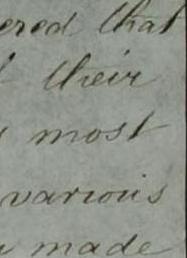 ered that
their
most
various
made